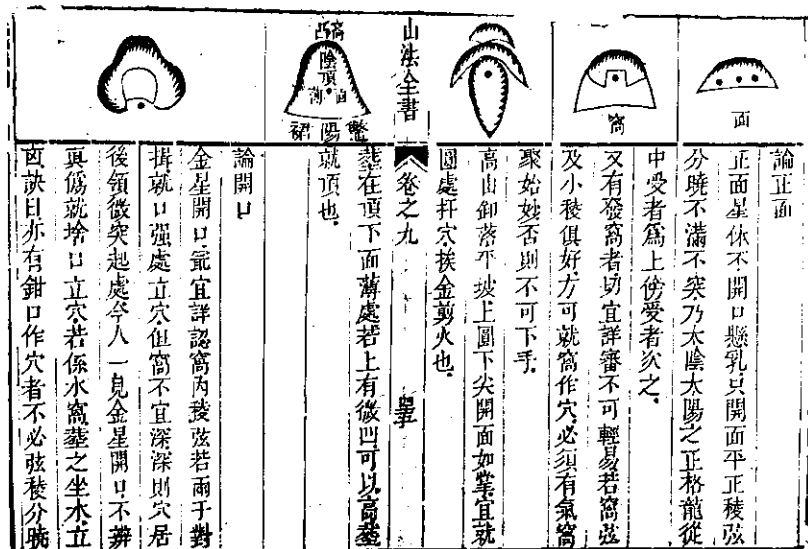 面
論正面
正面星体不開口懸乳只開面平正稜弦
分曉不滿不突乃太陰太陽之正格龍從
中受者爲上傍受者次之
窩
又有發窩者切宜詳審不可輕易若窩弦
及小稜俱好方可就窩作穴必須有氣窩
聚始妙否則不可下手
高山卸落平坡上圓下尖開面如掌宜就
圓處扦穴挨金剪火也
山法全書
卷之九
窩凸
陰頂
面薄
陽裙
塟在頂下面薄處若上有微凹可以高塟
就頂也
論開口
金星開口說宜詳認窩內稜弦若兩手對
揖就口强處立穴但窩不宜深深則穴居
後領微突起處今人一見金星開口不辨
真僞就培口立穴若係水窩塟之坐水立
凶訣曰亦有鉗口作穴者不必弦稜分曉